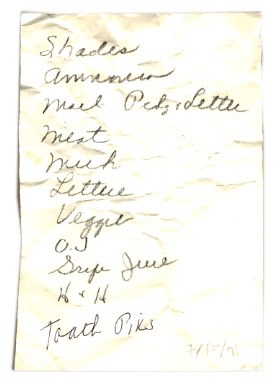 Shades
Ammonia
Mail Pckg & Letter
Meat
Milk
Lettuce
Veggie
O.J
Grape Juice
H & H
Tooth Piks